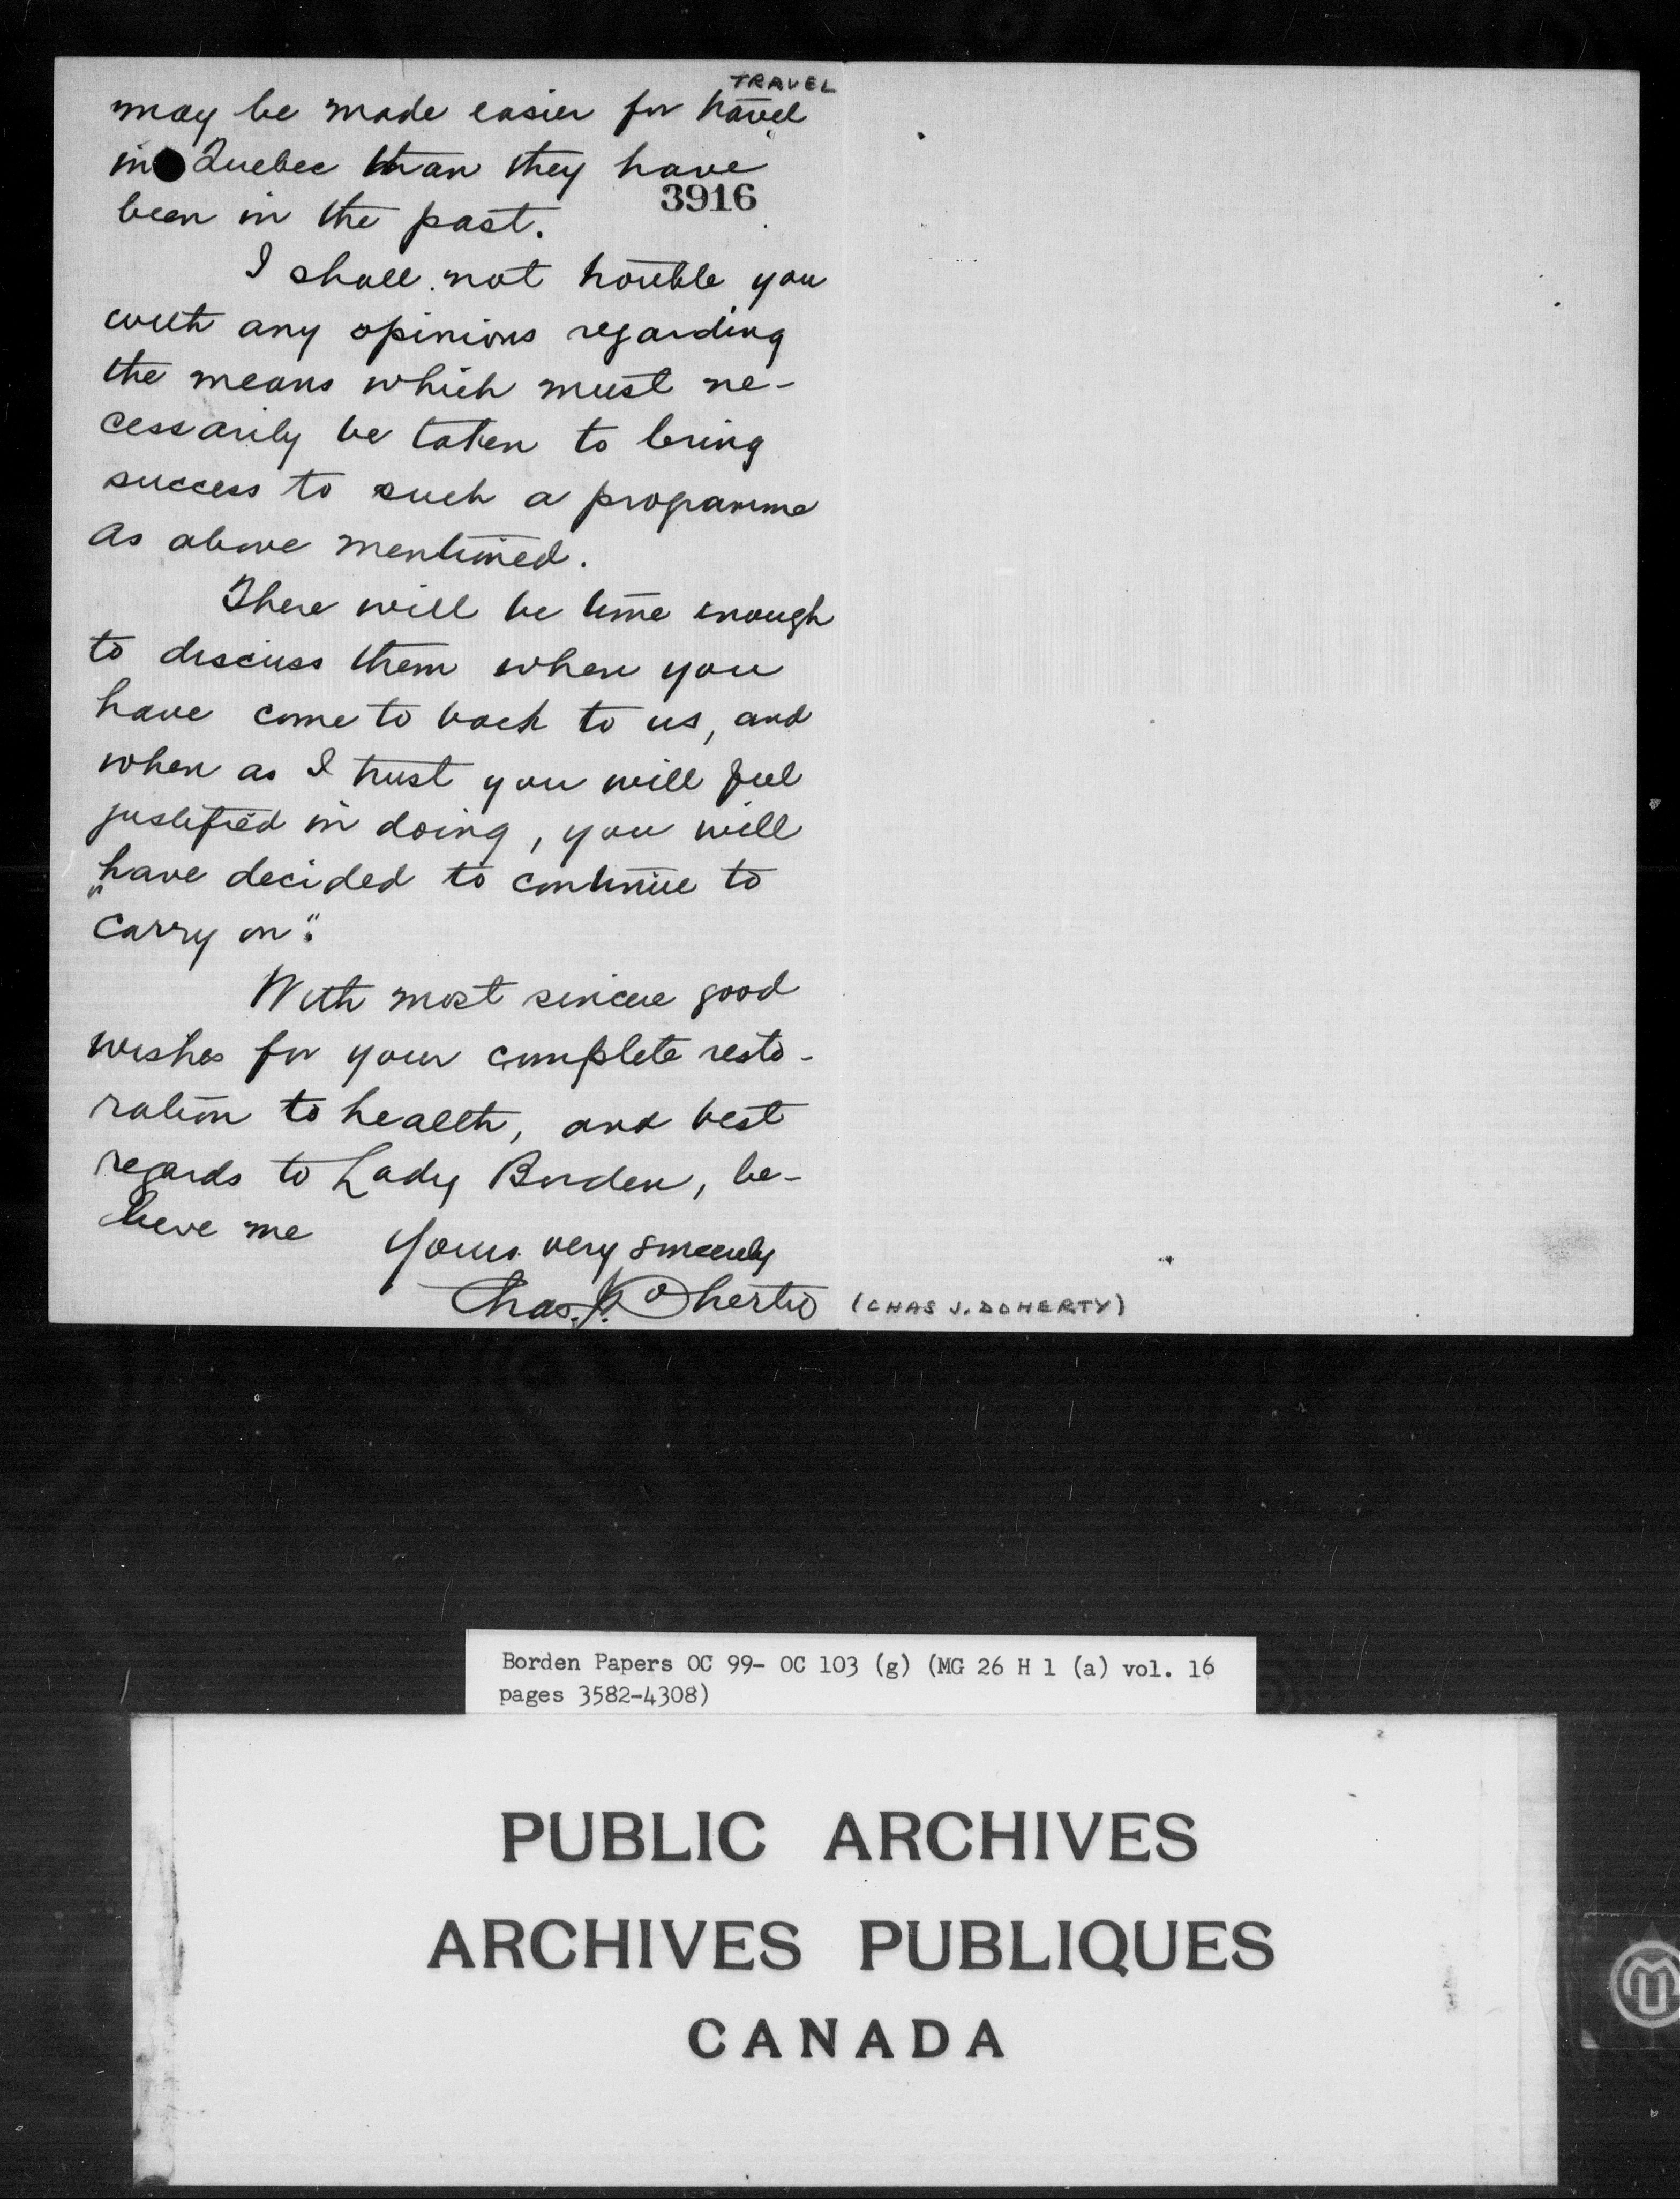 TRAVEL
may be made easier for travel
in Quebec than they have
3916
been in the past.
I shall not trouble you
with any opinions regarding
the means which must ne-
cessarily be taken to bring
success to such a programme
as above mentioned.
There will be time enough
to discuss them when you
have come to back to us, and
when as I trust you will feel
justified in doing, you will
have decided to continue to
"carry on".
With most sincere good
wishes for your complete resto-
ration to health, and best
regards to Lady Borden, be-
lieve me
Yours very sincerely
Chas. J. Doherty
(CHAS J. DOHERTY)
Borden Papers OC 99- OC 103 (g) (MG 26 H 1 (a) vol. 16
pages 3582-4308)
PUBLIC ARCHIVES
ARCHIVES PUBLIQUES
CANADA